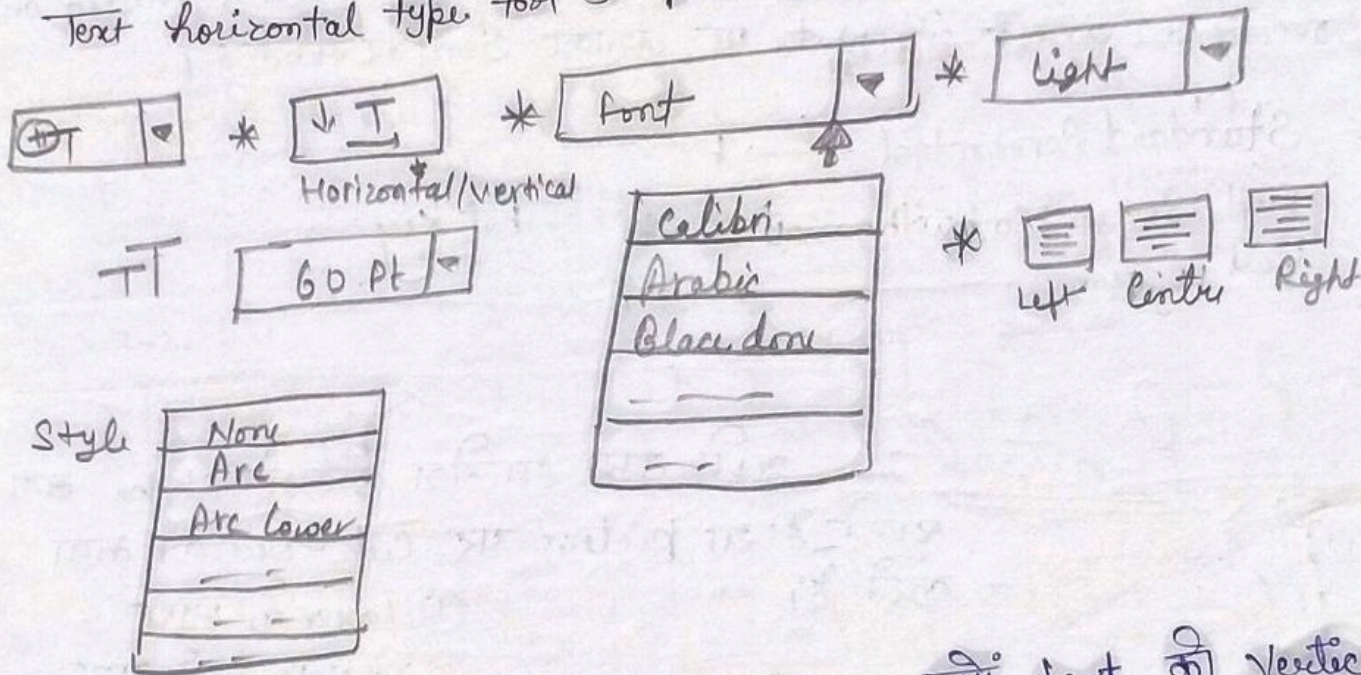 Text horizontal type tool
T * T * font * light
Horizontal/vertical
TT 60 Pt
Calibri
Arabic
* Left Centre Right
Style None
Arc
Arc lower
text को Vertic